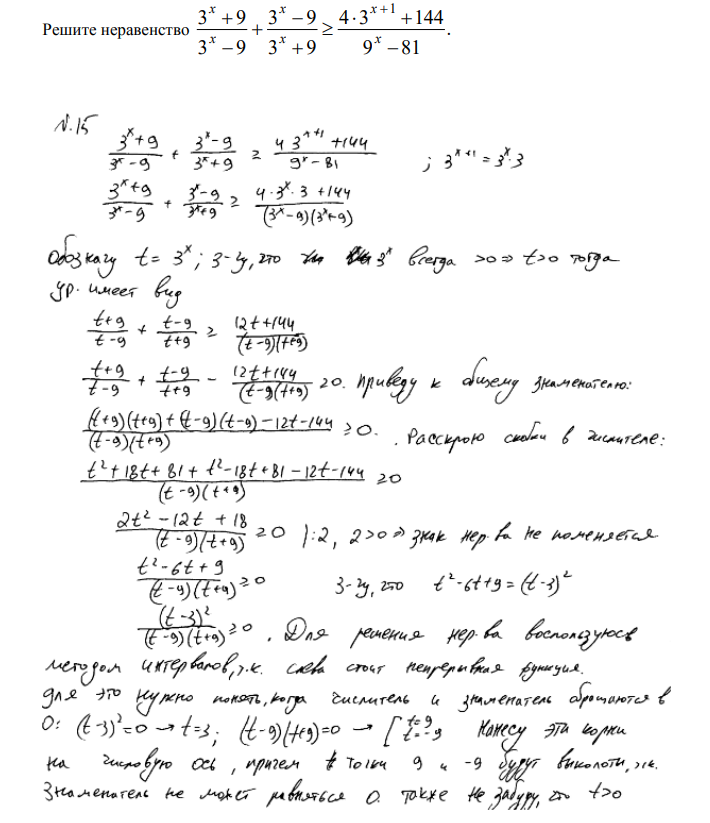 Решите неравенство (3^x + 9)/(3^x − 9) + (3^x − 9)/(3^x + 9) ≥ (4·3^(x+1) + 144)/(9^x − 81).
N.15
(3^x+9)/(3^x−9) + (3^x−9)/(3^x+9) ≥ (4 3^(x+1) +144)/(9^x−81) ; 3^(x+1) = 3^x·3
(3^x+9)/(3^x−9) + (3^x−9)/(3^x+9) ≥ (4·3^x·3 +144)/((3^x−9)(3^x+9))
Обозначу t = 3^x ; з-чу, что 3^x всегда >0 ⇒ t>0 тогда
ур. имеет вид
(t+9)/(t−9) + (t−9)/(t+9) ≥ (12t+144)/((t−9)(t+9))
(t+9)/(t−9) + (t−9)/(t+9) − (12t+144)/((t−9)(t+9)) ≥0. Приведу к общему знаменателю:
((t+9)(t+9)+(t−9)(t−9)−12t−144)/((t−9)(t+9)) ≥0. . Раскрою скобки в числителе:
(t²+18t+81+t²−18t+81−12t−144)/((t−9)(t+9)) ≥0
(2t²−12t+18)/((t−9)(t+9)) ≥0 |:2, 2>0 ⇒ знак нер-ва не поменяется
(t²−6t+9)/((t−9)(t+9)) ≥0 з-чу, что t²−6t+9=(t−3)²
(t−3)²/((t−9)(t+9)) ≥0 . Для решения нер-ва воспользуюсь
методом интервалов, т.к. слева стоит непрерывная функция.
Для это нужно понять, когда числитель и знаменатель обращаются в
0: (t−3)²=0 → t=3; (t−9)(t+9)=0 → [t=9 t=−9 Нанесу эти корни
на числовую ось, причем точки 9 и −9 будут выколоты, т.к.
знаменатель не может равняться 0. также не забуду, что t>0